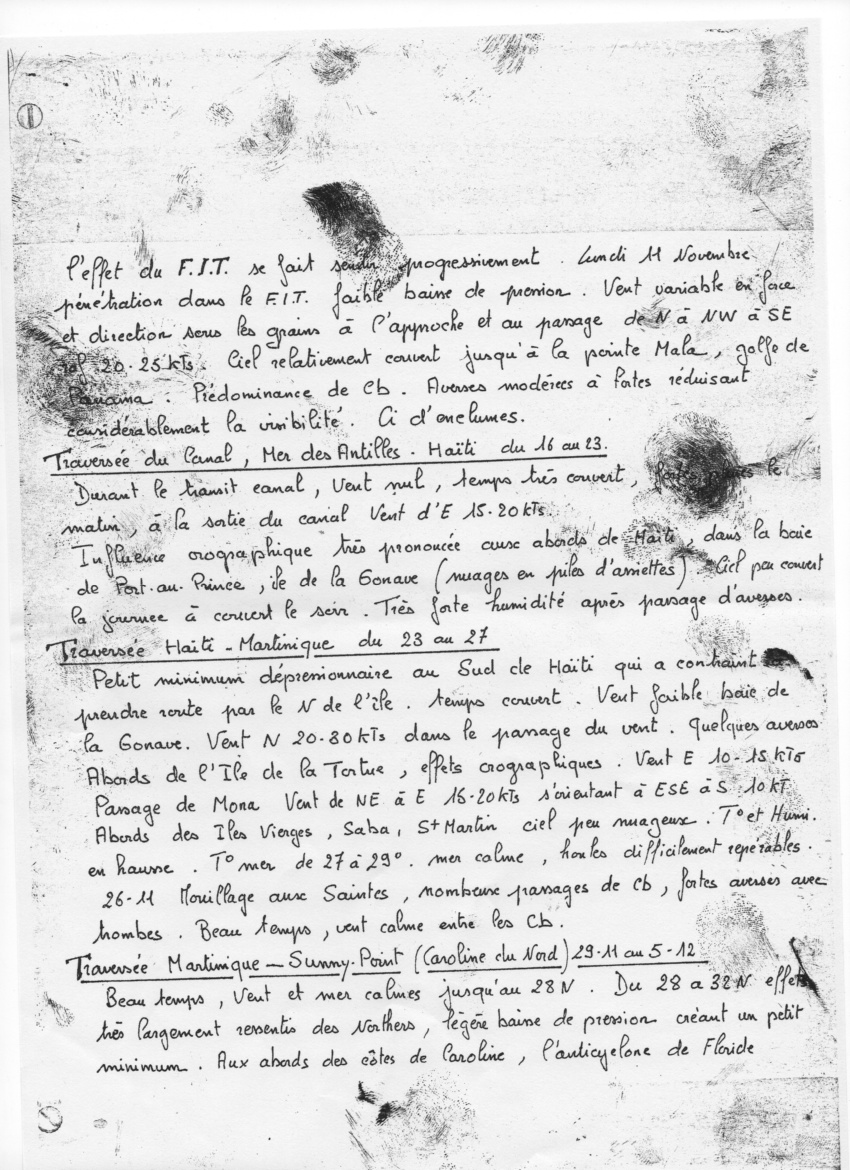 l'effet du F.I.T. se fait sentir progressivement. Lundi 11 Novembre
pénétration dans le F.I.T. faible baisse de pression. Vent variable en force
et direction sous les grains à l'approche et au passage de N à NW à SE
raf 20-25 kTs. Ciel relativement couvert jusqu'à la pointe Mala, golfe de
Panama. Prédominance de Cb. Averses modérées à fortes réduisant
considérablement la visibilité. Ci d'enclumes.
Traversée du Canal, Mer des Antilles - Haïti du 16 au 23.
Durant le transit canal, Vent nul, temps très couvert, fortes pluies le
matin, à la sortie du canal Vent d'E 15-20 kTs.
Influence orographique très prononcée aux abords de Haïti, dans la baie
de Port-au-Prince, île de la Gonave (nuages en piles d'assiettes). Ciel peu couvert
la journée à couvert le soir. Très forte humidité après passage d'averses.
Traversée Haïti - Martinique du 23 au 27
Petit minimum dépressionnaire au Sud de Haïti qui a contraint à
prendre route par le N de l'île. temps couvert. Vent faible baie de
la Gonave. Vent N 20-30 kTs dans le passage du vent. Quelques averses
Abords de l'Ile de la Tortue, effets orographiques. Vent E 10-15 kTs
Passage de Mona Vent de NE à E 15-20 kTs s'orientant à ESE à S 10 kT
Abords des Iles Vierges, Saba, St Martin ciel peu nuageux. T° et Humi.
en hausse. T° mer de 27 à 29°. mer calme, houles difficilement repérables.
26-11 Mouillage aux Saintes, nombreux passages de Cb, fortes averses avec
trombes. Beau temps, vent calme entre les Cb.
Traversée Martinique - Sunny-Point (Caroline du Nord) 29-11 au 5-12
Beau temps, Vent et mer calmes jusqu'au 28 N. Du 28 a 32 N effets
très largement ressentis des Northers, légère baisse de pression créant un petit
minimum. Aux abords des côtes de Caroline, l'anticyclone de Floride